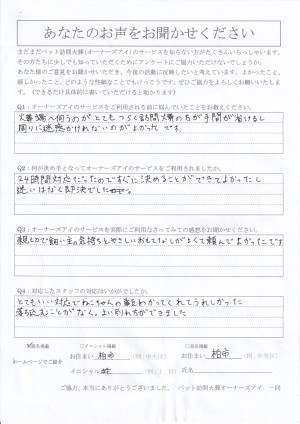 あなたのお声をお聞かせください
まだまだペット訪問火葬(オーナーズアイ)のサービスを知らない方がたくさんいらっしゃいます。
その方たちに少しでも知っていただくためにアンケートにご協力いただけないでしょうか。
あなた様のご意見をお聞かせいただき、今後の活動に反映したいと考えています。よかったこと、
嬉しかったこと、どのような些細なことでもけっこうです。ぜひご協力をよろしくお願いいたします。
(できるだけ具体的に書いていただけると助かります)
Q1:オーナーズアイのサービスをご利用される前に悩んでいたことをお教えください。
火葬場へ伺うのがとてもつらく訪問火葬の方が手間が省けるし
周りに迷惑がかけれないのがよかったです
Q2:何が決め手となってオーナーズアイのサービスをご利用されましたか。
24時間対応だったのですぐに決めることができてよかったし
迷いはなく即決でした
Q3:オーナーズアイのサービスを実際にご利用なさってみての感想をお聞かせください。
親切で飼い主の気持ちとやさしいおもてなしがよくて頼んでよかったです
Q4:対応したスタッフの対応はいかがでしたか。
とてもいい対応でねこちゃんの事をわかってくれてうれしかった
落ち込むことがなく、よい別れ方ができました
□イニシャル掲載
ホームページでご紹介
お住まい 柏市 (例:中央区)
お住まい 柏市 (例:中央区)
イニシャル (例:J、H)
ご協力、本当にありがとうございました。 ペット訪問火葬オーナーズアイ 一同